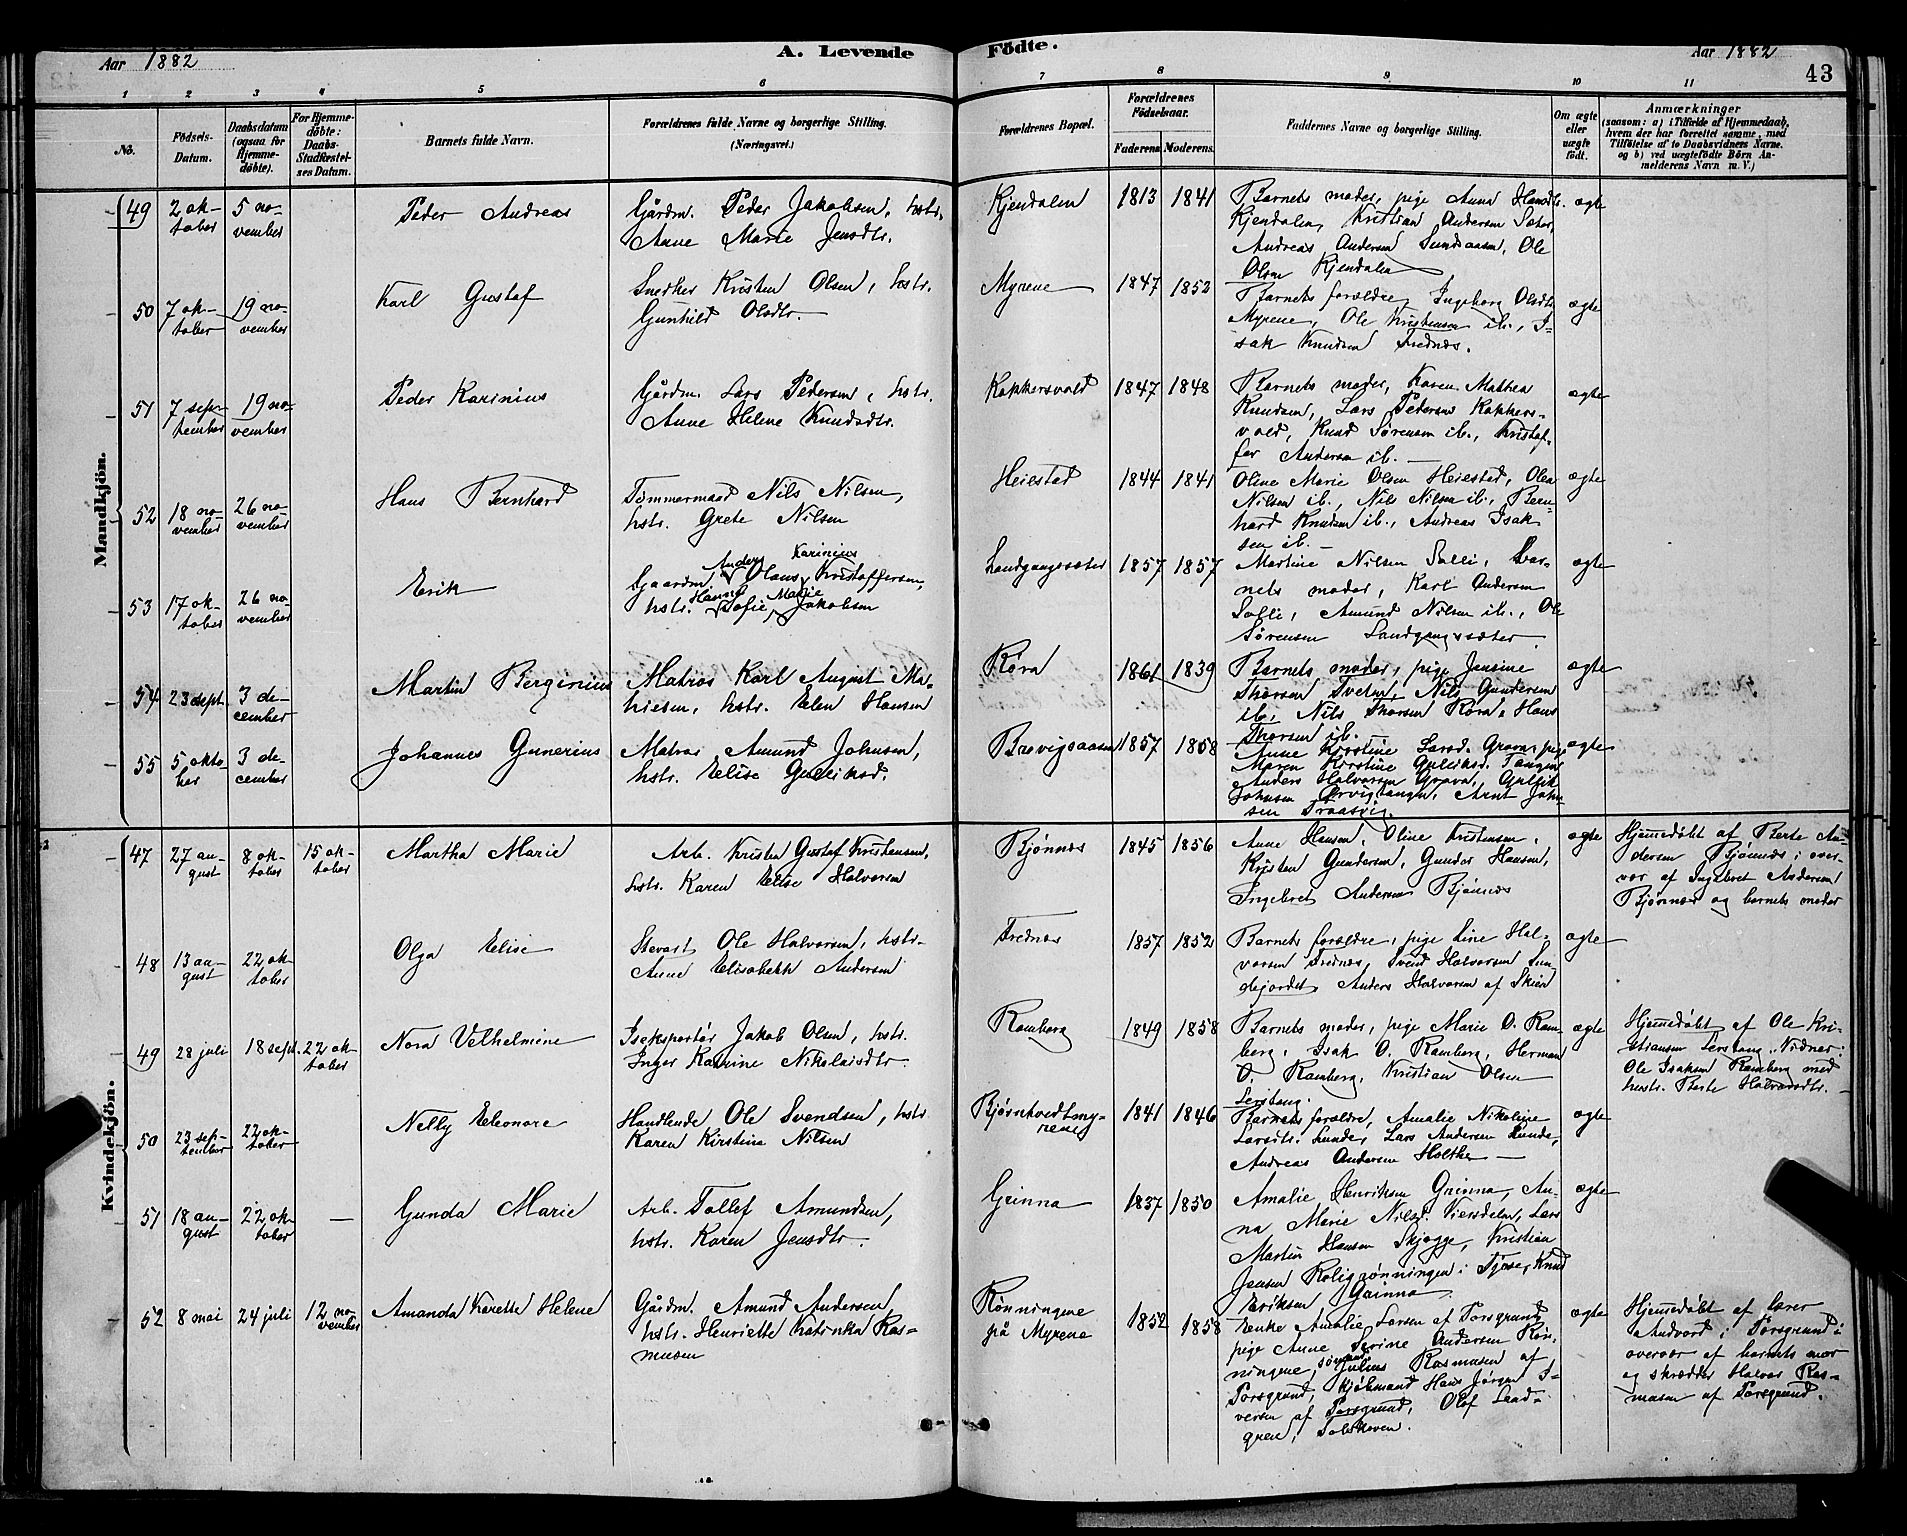 Aar 1882
A. Levende
Födte.
Aar 1882
43
1 2 3 4 5 6 7 8 9 10 11
No.
Födsels-Datum.
Daabsdatum (ogsaa for Hjemme-döbte).
For Hjemme-döbte: Daabs-Stadfæstel-ses Datum.
Barnets fulde Navn.
Forældrenes fulde Navne og borgerlige Stilling. (Næringsvei.)
Forældrenes Bopæl.
Forældrenes Födselsaar.
Faderens Moderens.
Faddernes Navne og borgerlige Stilling.
Om ægte eller uægte födt.
Anmærkninger (saasom: a) i Tilfælde af Hjemmedaab, hvem der har forrettet samme, med Tilföielse af to Daabsvidners Navne. og b) ved uægtefödte Börn Anmelderens Navn m. V.)
Mandkjön.
49 2 ok-tober 5 no-vember
Peder Andreas
Gårdm. Peder Jakobsen, hstr.
Anne Marie Jensdtr.
Kjendalen 1813 1841
Barnets moder, pige Anne Hansdtr.
Kjendalen, Kristian Andersen
Andreas Andersen Sundsaasen, Ole
Olsen Kjendalen
ægte
50 7 ok-tober 19 no-vember
Karl Gustaf
Snedker Kristen Olsen, hstr.
Gunhild Olsdtr.
Myrene 1847 1852
Barnets forældre, Ingeborg Olsdtr.
Myrene, Ole Kristensen ib., I-
sak Knudsen Frednæs.
ægte
51 7 sep-tember 19 no-vember
Peder Karinius
Gårdm. Lars Pedersen, hstr.
Anne Helene Knudsdtr.
Kokkersvold 1847 1848
Barnets moder, Karen Mathea
Knudsen, Lars Pedersen Kokkers-
vold, Knud Sørensen ib., Kristof-
fer Andersen ib.
ægte
52 18 no-vember 26 no-vember
Hans Bernhard
Tømmermand Nils Nilsen,
hstr. Grete Nilsen
Heiestad 1844 1841
Oline Marie Olsen Heiestad, Olea
Nilsen ib., Nils Nilsen ib., Bern-
hard Knudsen ib., Andreas Isak
sen ib.
ægte
53 17 ok-tober 26 no-vember
Erik
Anders Karinius
Gaardm. Olaus Kristoffersen,
Hanna Marie
hstr. Sofie Jakobsen
Landgangssæter 1857 1857
Martine Nilsen Solli, bar-
nets moder, Karl Andersen
Solli, Amund Nilsen ib., Ole
Sørensen Landgangssæter
ægte
54 23 sept. 3 de-cember
Martin Berginius
Matros Karl August Ma-
thiesen, hstr. Elen Hansen
Røra 1861 1839
Barnets moder, pige Jensine
Thorsen Tveten, Nils Gundersen
ib. Nils Thorsen Røra, Hans
Thorsen ib.
ægte
55 5 okto-ber 3 de-cember
Johannes Gunerius
Matros Amund Johnsen,
hstr. Elise Gulliksd.
Brevigsaasen 1857 1858
Anne Kirstine Larsd. Grava, pige
Maren Kirstine Gulliksd. Tangen
Anders Halvorsen Grava, Gullik
Johnsen Ørvigtangen, Arnt John-
sen Traasvig.
ægte
Kvindekjön.
47 27 au-gust 8 ok-tober 15 ok-tober
Martha Marie
Arb. Kristen Gustaf Kristensen,
hstr. Karen Elise Halvorsen
Bjønnes 1845 1856
Anne Hansen, Oline Kristensen,
Kristen Gundersen, Gunder Hansen,
Ingebret Andersen Bjønnes
ægte
Hjemmedøbt af Berte An-
dersen Bjønnes i over-
vær af Ingebret Andersen
Bjønnes og barnets moder
48 13 au-gust 22 ok-tober
Olga Elise
Stevart Ole Halvorsen, hstr.
Anne Elisabeth Andersen
Frednæs 1857 1852
Barnets forældre, pige Line Hal-
vorsen Frednæs, Svend Halvorsen Sun-
dejordet, Anders Halvorsen af Skien
ægte
49 28 juli 18 sept. 22 ok-tober
Nora Velhelmine
Iseksportør Jakob Olsen, hstr.
Inger Katrine Nikolaisdtr.
Ramberg 1849 1858
Barnets moder, pige Marie O. Ram-
berg, Isak O. Ramberg, Herman
O. Ramberg, Kristian Olsen
Lerstang.
ægte
Hjemmedøbt af Ole Kri-
stiansen Lerstang. Vidner:
Ole Isaksen Ramberg med
hustr. Berte Halvorsdtr.
50 23 sep-tember 22 ok-tober
Nelly Eleonore
Handlende Ole Svendsen, hstr.
Karen Kirstine Nilsen
Bjørntvedtmy-rene 1841 1846
Barnets forældre, Amalie Nikoline
Larsdtr. Lunde, Lars Andersen Lunde,
Andreas Andersen Holther
ægte
51 18 au-gust 22 ok-tober —
Gunda Marie
Arb. Tollef Amundsen,
hstr. Karen Jensdtr.
Grinna 1837 1850
Amalie Henriksen Grinna, An-
na Marie Nilsd. Viersdalen, Lars
Martin Hansen Skjøgge, Kristian
Jensen Roligrønningen i Tjøse, Knud
Eriksen Grinna.
ægte
52 8 mai 24 juli 12 no-vember
Amanda Karette Helene
Gårdm. Amund Andersen,
hstr. Henriette Katrinka Ras-
musen
Rønningene
på Myrene
1852 1858
Enke Amalie Larsen af Porsgrund,
pige Anne Serine Andersen Røn-
ningene, sømand Julius Rasmusen af
Porsgrund, kjøbmand Hans Jørgen I-
versen af Porsgrund, Olof Lund-
gren,
ægte
Hjemmedøbt af lærer
Andvord i Porsgrund i
overvær af barnets mor
og skrædder Halvor Ras-
musen af Porsgrund.